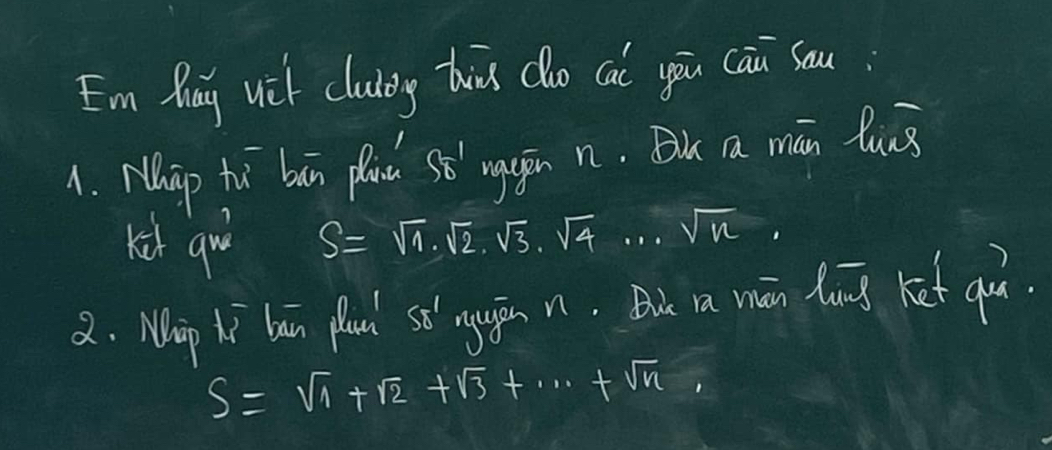 Em hãy viết chương trình cho các yêu cầu sau :
1. Nhập từ bàn phím số nguyên n. Đưa ra màn hình
kết quả S= √1.√2.√3.√4 ... √n .
2. Nhập từ bàn phím số nguyên n. Đưa ra màn hình kết quả.
S= √1 + √2 + √3 + ... + √n .